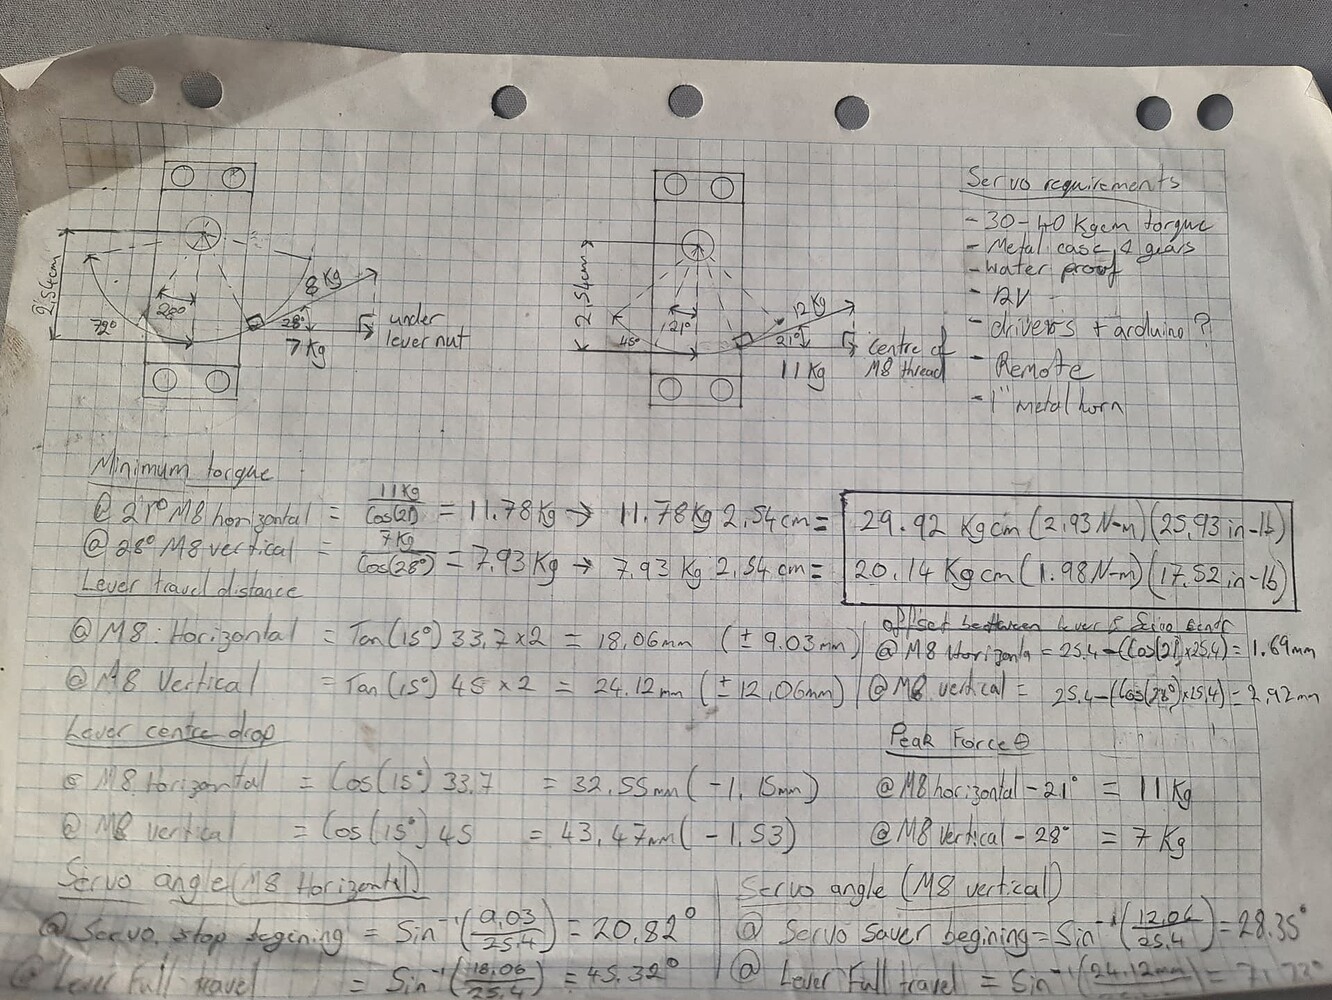 Servo requirements
- 30-40 Kgcm torque
- Metal case & gears
- Water proof
- 12V
- drivers + arduino?
- Remote
- 1" metal horn
2.54cm
72°
28°
8 Kg
28°
7 Kg
under
lever nut
2.54cm
45°
21°
12 Kg
21°
11 Kg
Centre of
M8 thread
Minimum torque
@ 21° M8 horizontal = 11Kg/Cos(21) = 11.78 Kg → 11.78 Kg 2.54 cm = 29.92 Kgcm (2.93 N-m) (25.93 in-lb)
@ 28° M8 vertical = 7Kg/Cos(28°) = 7.93 Kg → 7.93 Kg 2.54 cm = 20.14 Kgcm (1.98 N-m) (17.52 in-lb)
Lever travel distance
@ M8 : Horizontal = Tan(15°) 33.7 x 2 = 18.06mm (± 9.03mm)
@ M8 Vertical = Tan(15°) 45 x 2 = 24.12mm (± 12.06mm)
offset between lever & Servo
@ M8 Horizonta = 25.4-(Cos(21)x25.4) = 1.69mm
@ M8 vertical = 25.4-(Cos(28°)x25.4) = 2.92mm
Lever centre drop
@ M8 Horizontal = Cos(15°) 33.7 = 32.55mm (-1.15mm)
@ M8 vertical = Cos(15°) 45 = 43.47mm (-1.53)
Peak Force θ
@ M8 horizontal - 21° = 11 Kg
@ M8 vertical - 28° = 7 Kg
Servo angle (M8 Horizontal)
@ Servo stop begining = Sin⁻¹(9.03/25.4) = 20.82°
@ Lever Full travel = Sin⁻¹(18.06/25.4) = 45.32°
Servo angle (M8 vertical)
@ Servo saver begining = Sin⁻¹(12.06/25.4) = 28.35°
@ Lever Full travel = Sin⁻¹(24.12mm